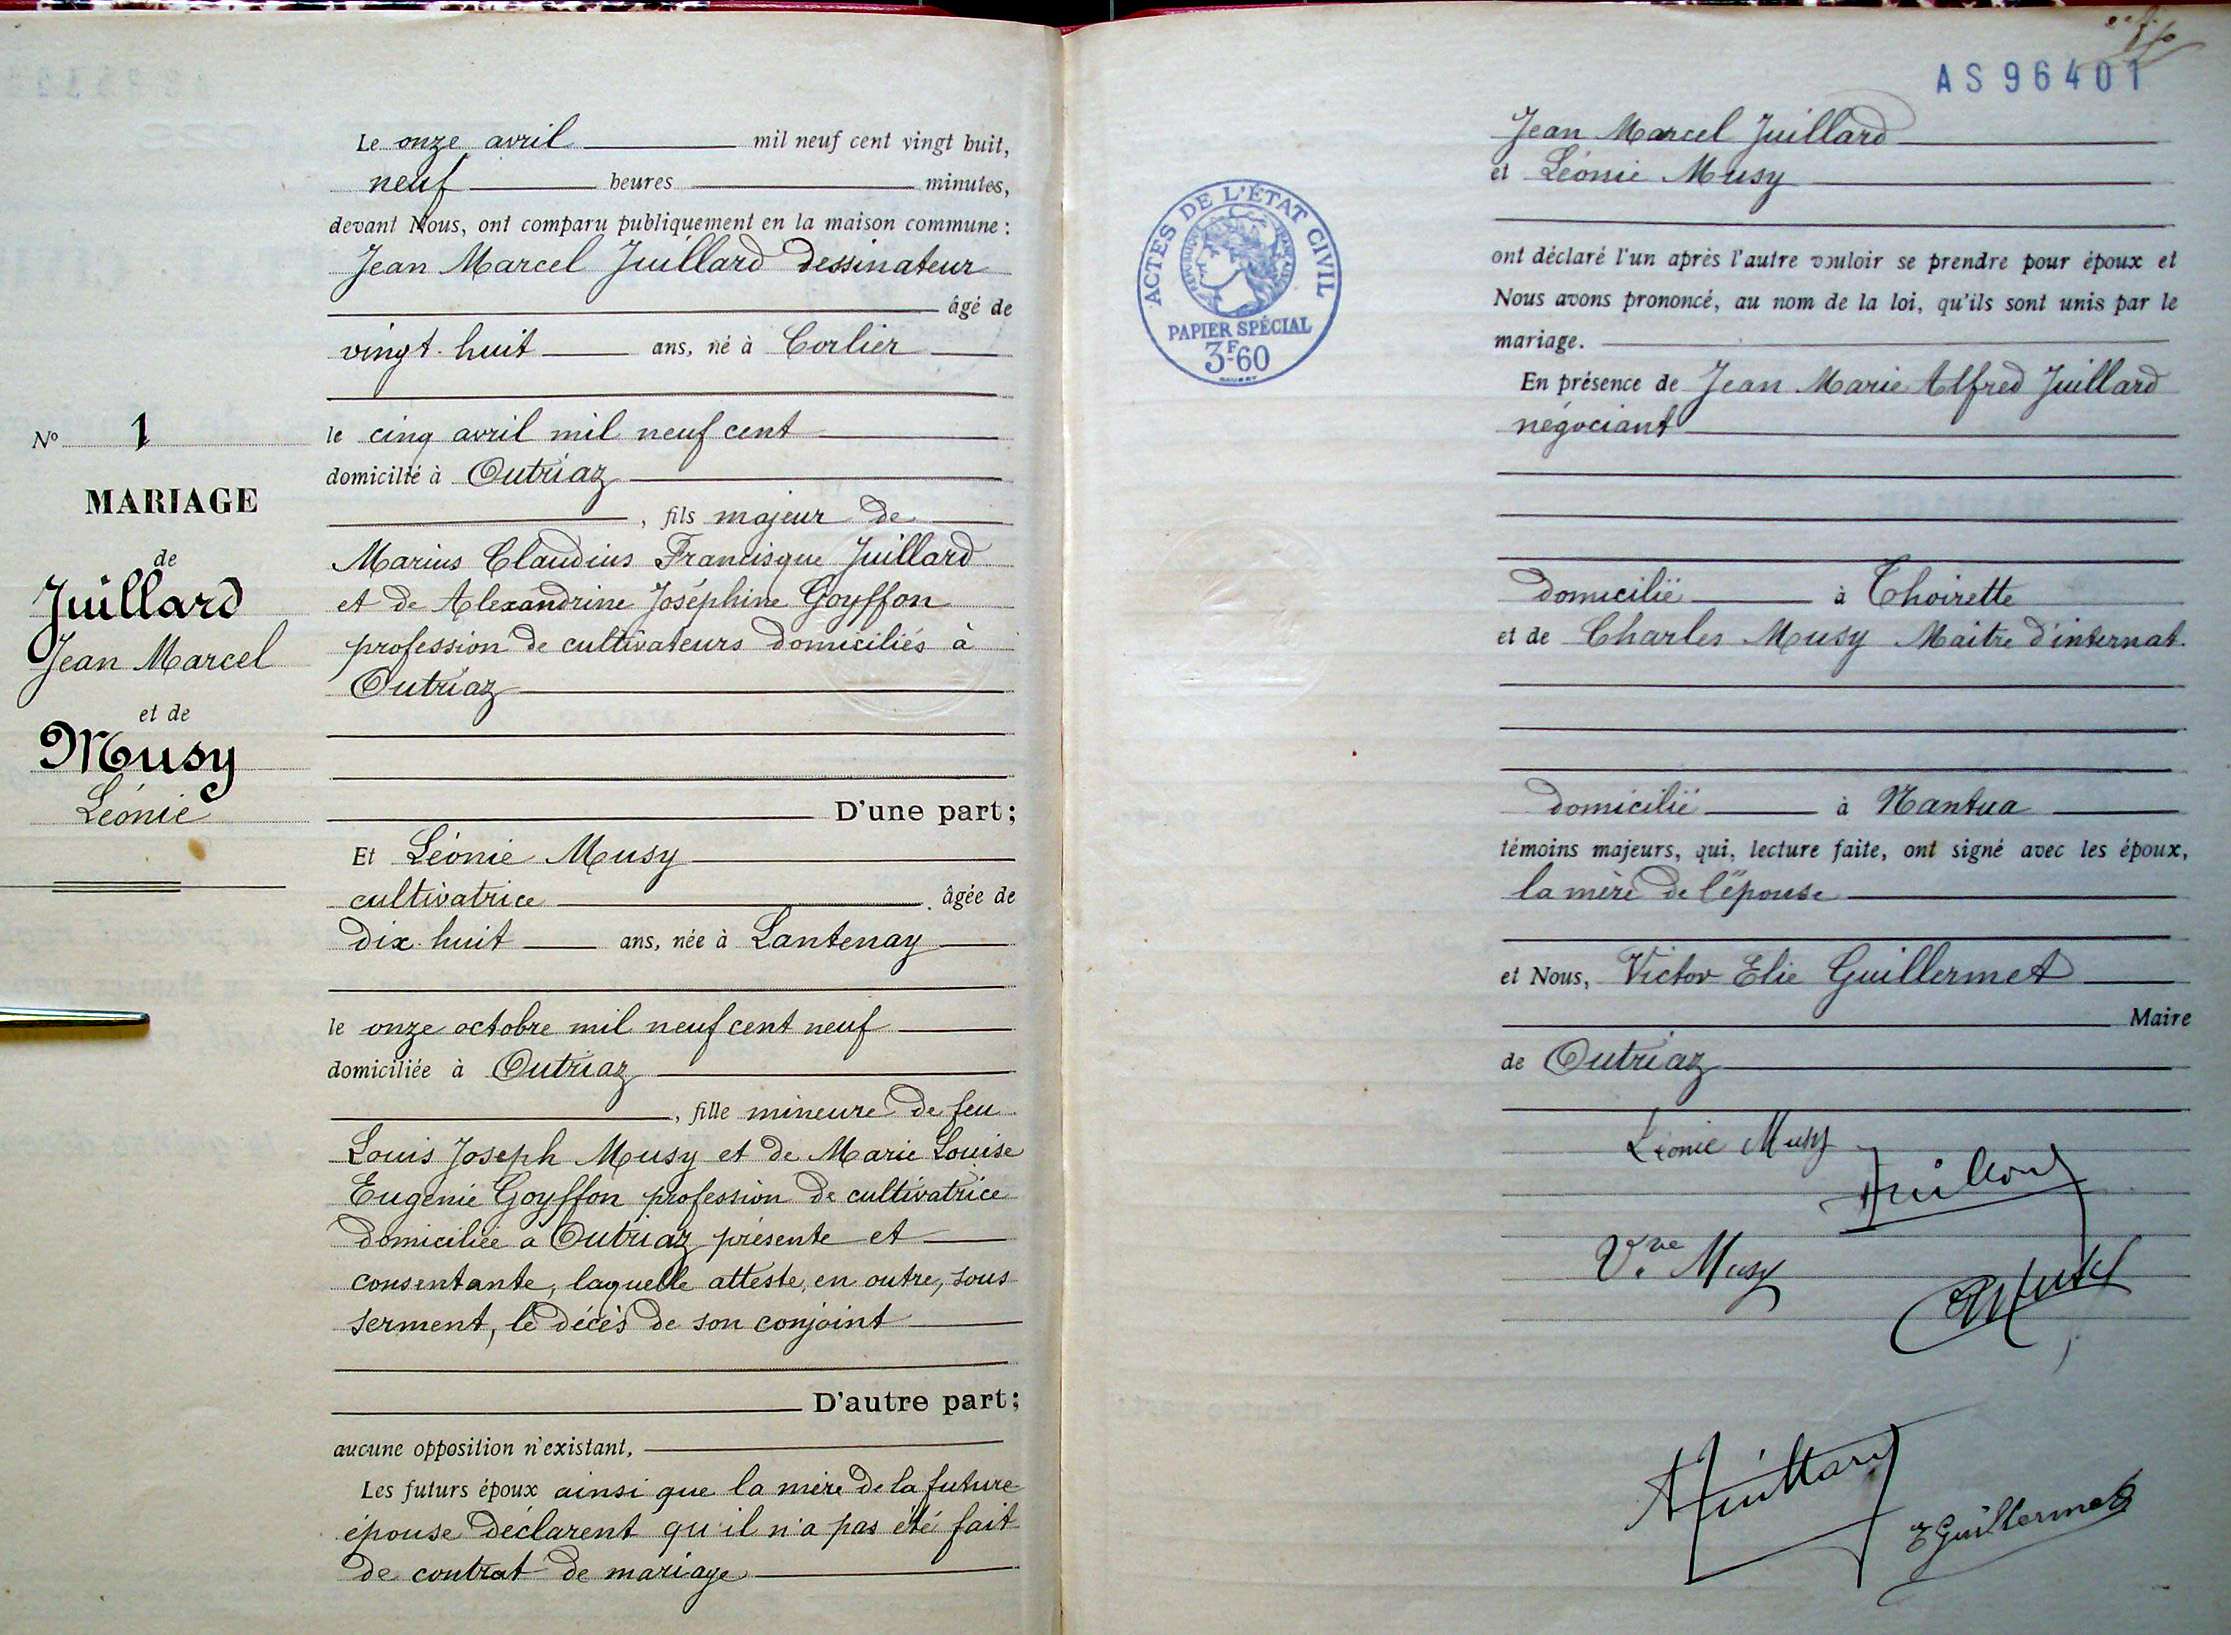 Nº 1
MARIAGE
de
Juillard
Jean Marcel
et de
Musy
Léonie
Le onze avril mil neuf cent vingt huit,
neuf heures minutes,
devant Nous, ont comparu publiquement en la maison commune :
Jean Marcel Juillard dessinateur
âgé de
vingt-huit ans, né à Corlier
le cinq avril mil neuf cent
domicilié à Outriaz
, fils majeur de
Marius Claudius Francisque Juillard
et de Alexandrine Joséphine Goyffon
profession de cultivateurs domiciliés à
Outriaz
D'une part;
Et Léonie Musy
cultivatrice âgée de
dix-huit ans, née à Lantenay
le onze octobre mil neuf cent neuf
domiciliée à Outriaz
, fille mineure de feu
Louis Joseph Musy et de Marie Louise
Eugénie Goyffon profession de cultivatrice
domiciliée à Outriaz présente et
consentante, laquelle atteste, en outre, sous
serment, le décès de son conjoint
D'autre part;
aucune opposition n'existant,
Les futurs époux ainsi que la mère de la future
épouse déclarent qu'il n'a pas été fait
de contrat de mariage
AS 96401
ACTES DE L'ÉTAT CIVIL
PAPIER SPÉCIAL
3F60
Jean Marcel Juillard
et Léonie Musy
ont déclaré l'un après l'autre vouloir se prendre pour époux et
Nous avons prononcé, au nom de la loi, qu'ils sont unis par le
mariage.
En présence de Jean Marie Alfred Juillard
négociant
domicilié à Thoirette
et de Charles Musy Maitre d'internat
domicilié à Nantua
témoins majeurs, qui, lecture faite, ont signé avec les époux,
la mère de l'épouse
et Nous, Victor Elie Guillermet
Maire
de Outriaz
Léonie Musy
Juillard
Vve Musy
CMusy
AJuillard
EGuillermet